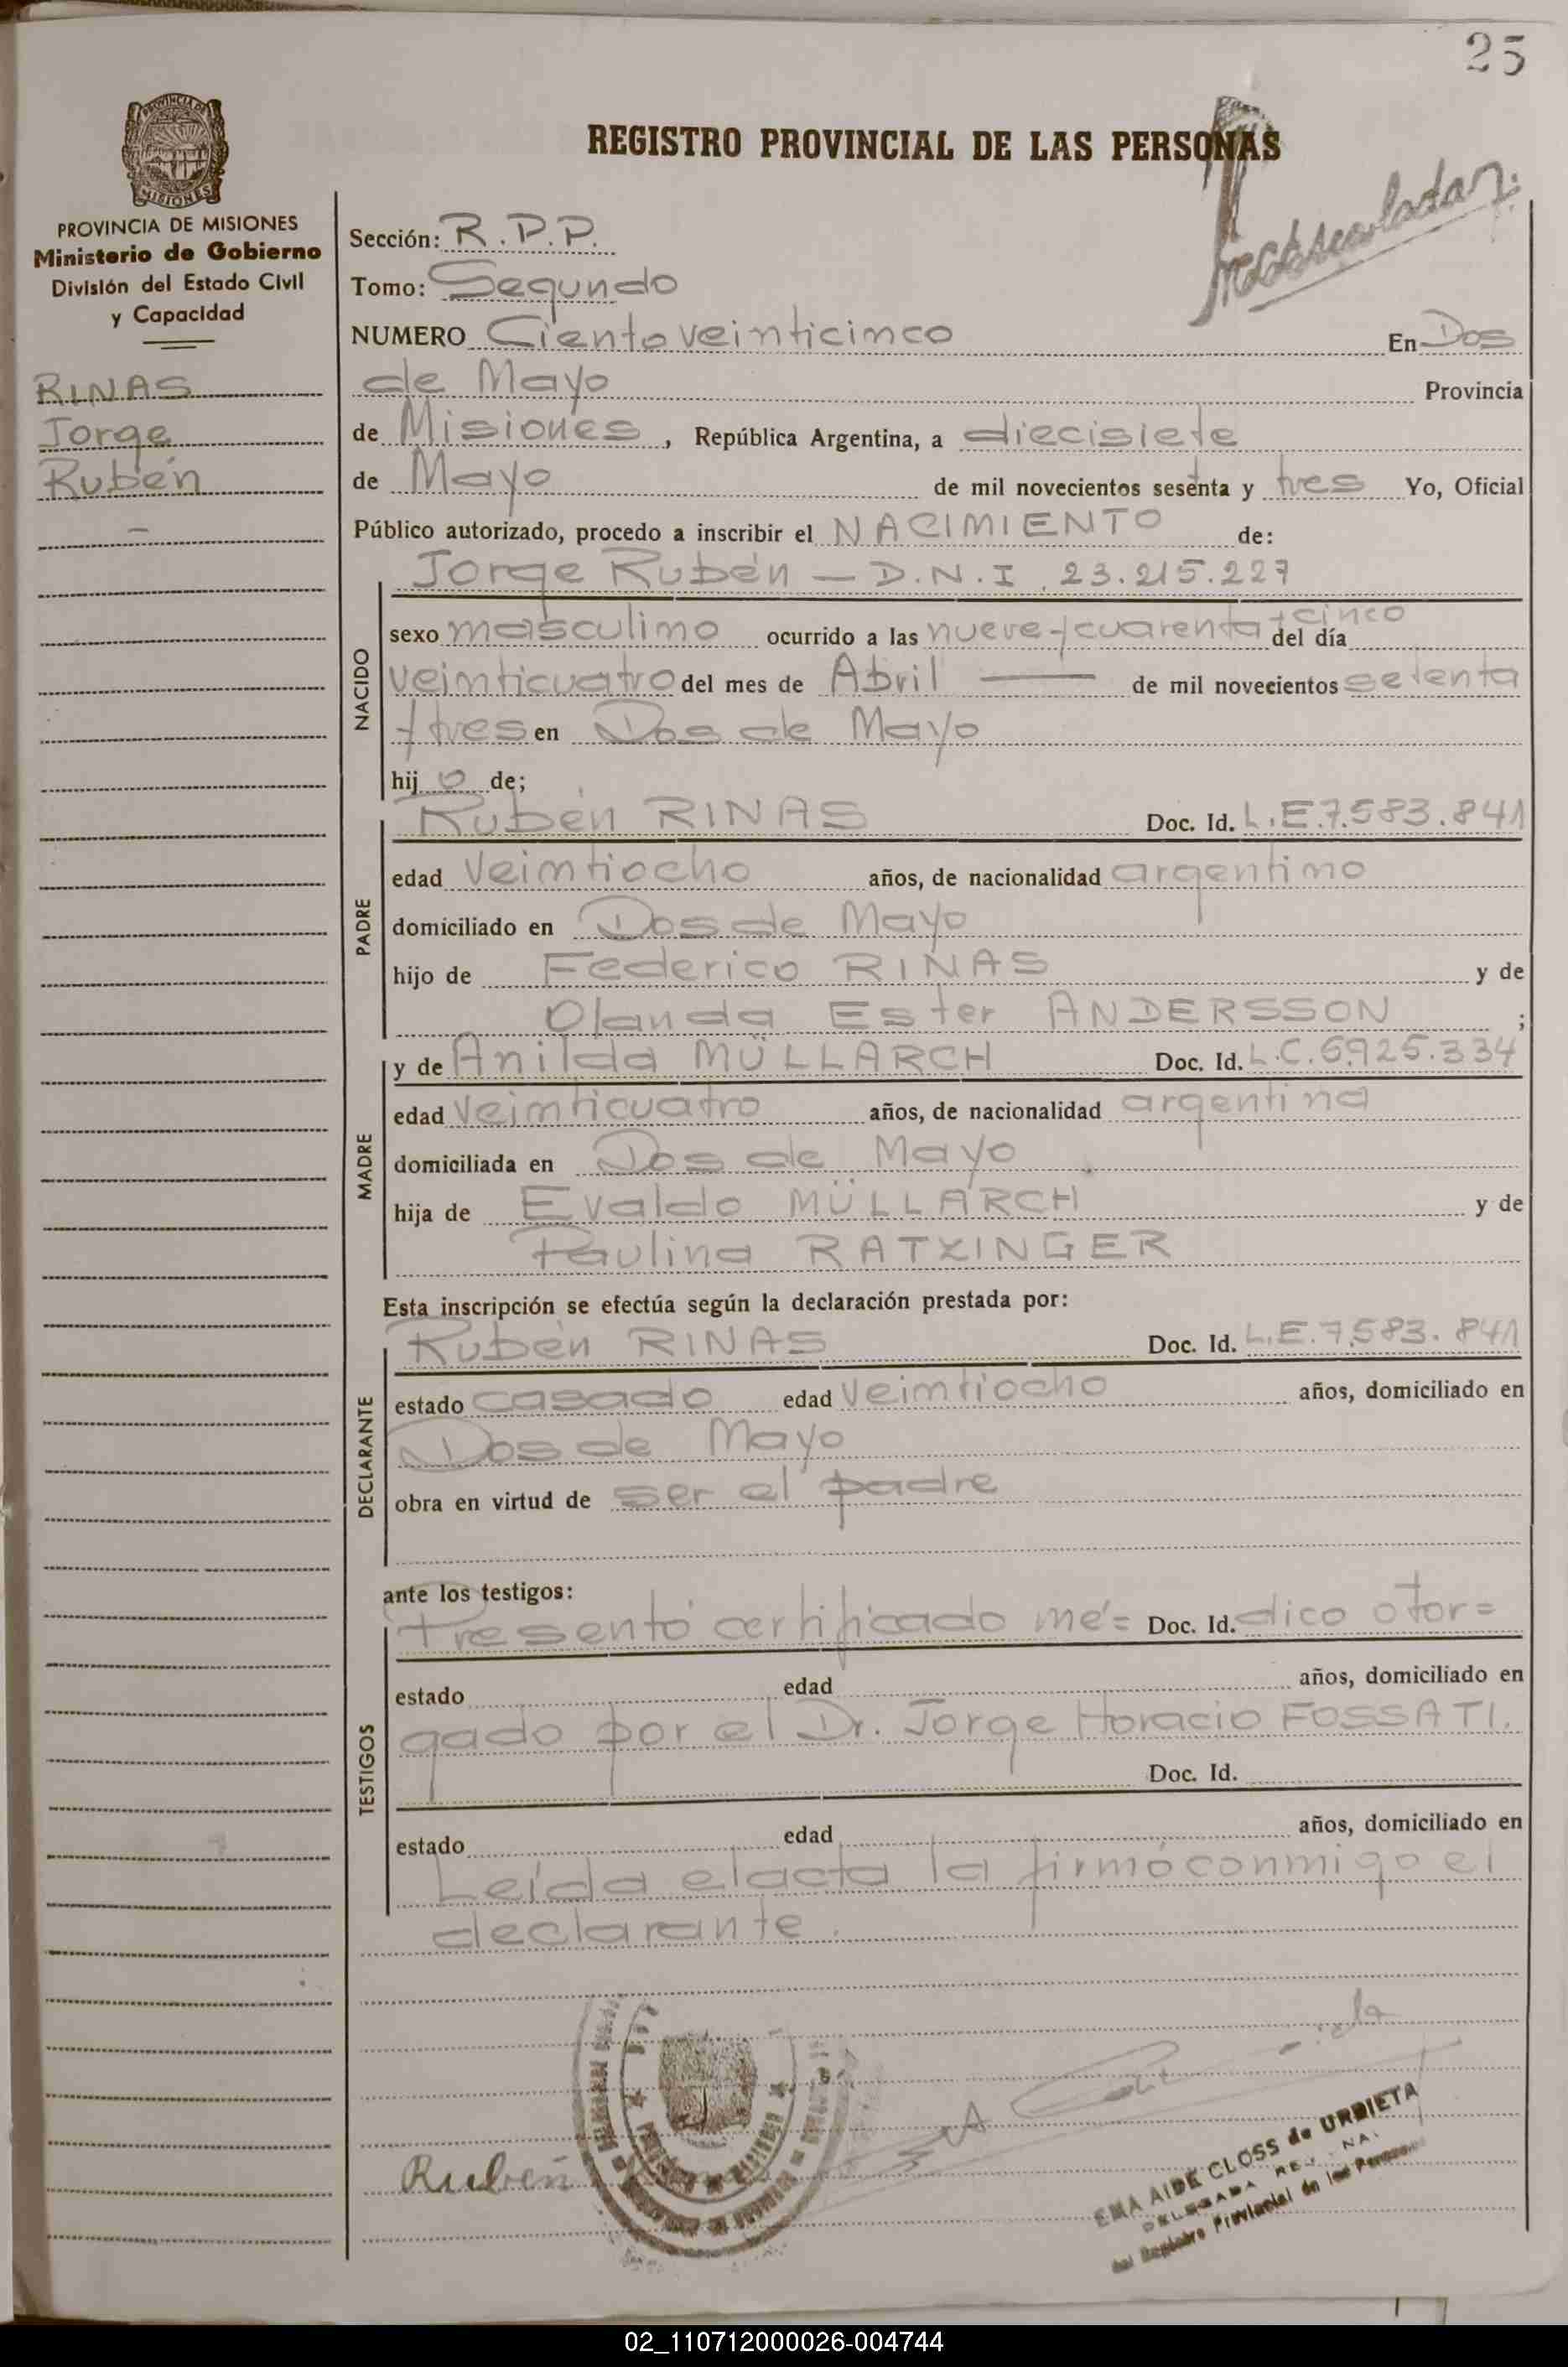 25
PROVINCIA DE
MISIONES
PROVINCIA DE MISIONES
Ministerio de Gobierno
División del Estado Civil
y Capacidad
RINAS
Jorge
Rubén
REGISTRO PROVINCIAL DE LAS PERSONAS
Sección: R.P.P.
Tomo: Segundo
NUMERO Ciento veinticinco En Dos
de Mayo Provincia
de Misiones, República Argentina, a diecisiete
de Mayo de mil novecientos sesenta y tres Yo, Oficial
Público autorizado, procedo a inscribir el NACIMIENTO de:
Jorge Rubén — D.N.I. 23.215.227
NACIDO
sexo masculino ocurrido a las nueve y cuarenta y cinco del día
veinticuatro del mes de Abril — de mil novecientos setenta
y tres en Dos de Mayo
hijo de;
PADRE
Rubén RINAS Doc. Id. L.E.7.583.841
edad veintiocho años, de nacionalidad argentino
domiciliado en Dos de Mayo
hijo de Federico RINAS y de
Olanda Ester ANDERSSON ;
MADRE
y de Anilda MÜLLARCH Doc. Id. L.C.5.925.334
edad veinticuatro años, de nacionalidad argentina
domiciliada en Dos de Mayo
hija de Evaldo MÜLLARCH y de
Paulina RATXINGER
Esta inscripción se efectúa según la declaración prestada por:
DECLARANTE
Rubén RINAS Doc. Id. L.E.7.583.841
estado casado edad veintiocho años, domiciliado en
Dos de Mayo
obra en virtud de ser el padre
ante los testigos:
TESTIGOS
Presentó certificado mé= Doc. Id. dico otor=
estado edad años, domiciliado en
gado por el Dr. Jorge Horacio FOSSATI.
Doc. Id.
estado edad años, domiciliado en
Leída el acta la firmó conmigo el
declarante.
Rubén
EMA AIDE CLOSS de URDIETA
DELEGADA
del Registro Provincial de las Personas
02_110712000026-004744